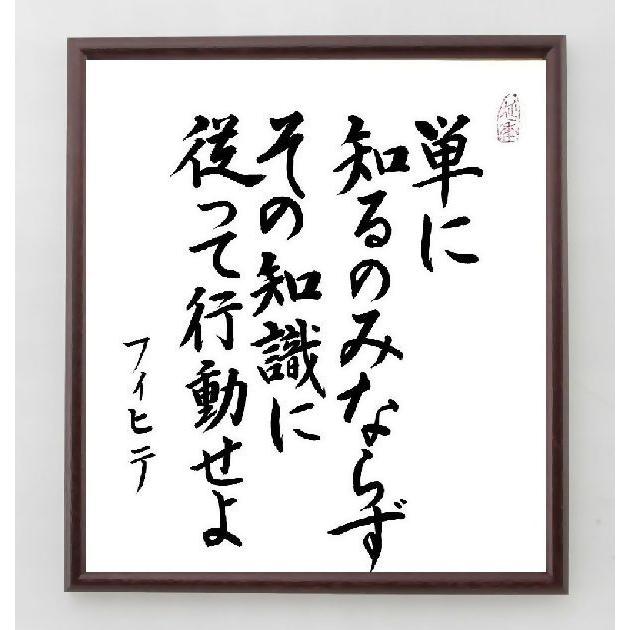 単に
知るのみならず
その知識に
従って行動せよ
フィヒテ